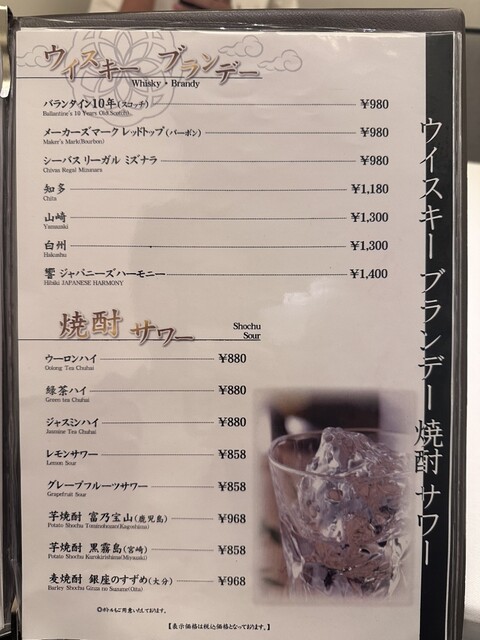 ウイスキー ブランデー
Whisky・Brandy
バランタイン10年(スコッチ) ¥980
Ballantine's 10 Years Old(Scotch)
メーカーズマーク レッドトップ(バーボン) ¥980
Maker's Mark(Bourbon)
シーバス リーガル ミズナラ ¥980
Chivas Regal Mizunara
知多 ¥1,180
Chita
山崎 ¥1,300
Yamazaki
白州 ¥1,300
Hakushu
響 ジャパニーズハーモニー ¥1,400
Hibiki JAPANESE HARMONY
焼酎 サワー
Shochu
Sour
ウーロンハイ ¥880
Oolong Tea Chuhai
緑茶ハイ ¥880
Green tea Chuhai
ジャスミンハイ ¥880
Jasmine Tea Chuhai
レモンサワー ¥858
Lemon Sour
グレープフルーツサワー ¥858
Grapefruit Sour
芋焼酎 富乃宝山(鹿児島) ¥968
Potato Shochu Tominohozan(Kagoshima)
芋焼酎 黒霧島(宮崎) ¥858
Potato Shochu Kurokirishima(Miyazaki)
麦焼酎 銀座のすずめ(大分) ¥968
Barley Shochu Ginza no Suzume(Oita)
◎ボトルもご用意いたしております。
【表示価格は税込価格となっております。】
ウイスキー ブランデー 焼酎 サワー